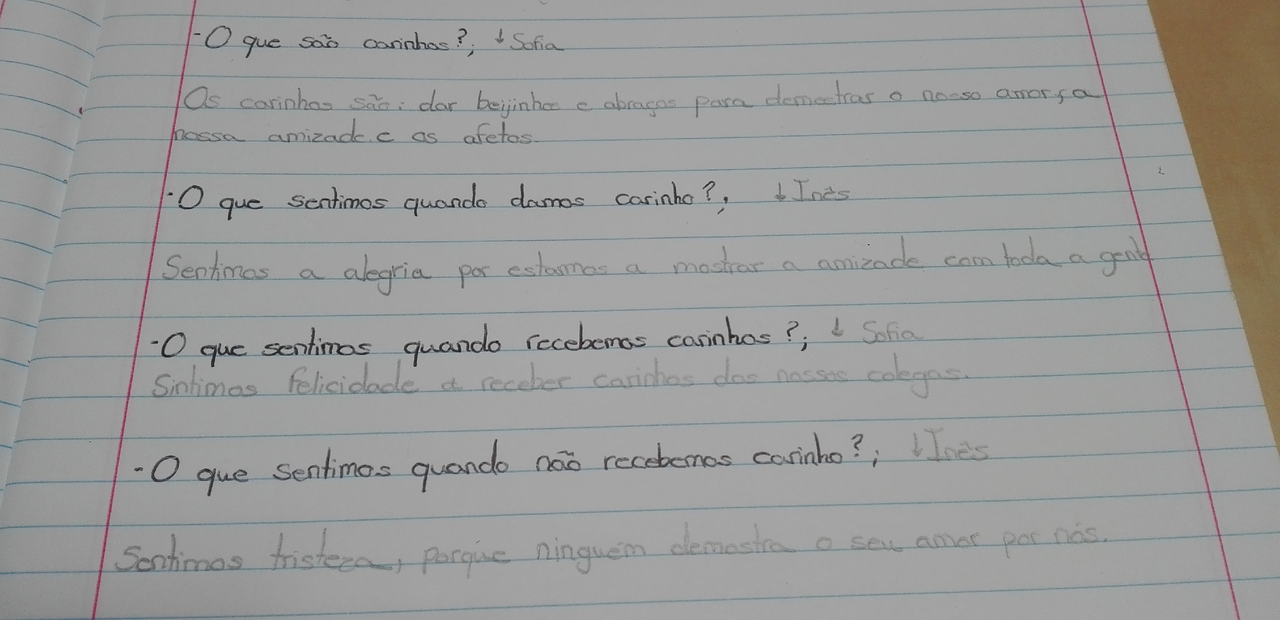 -O que são carinhos?; ↓ Sofia
Os carinhos são: dar beijinhos e abraços para demostrar o nosso amor, a
nossa amizade e os afetos.
-O que sentimos quando damos carinho?; ↓ Inês
Sentimos a alegria por estarmos a mostrar a amizade com toda a gente
-O que sentimos quando recebemos carinhos?; ↓ Sofia
Sintimos felicidade a receber carinhos dos nossos colegas.
-O que sentimos quando não recebemos carinho?; ↓ Inês
Sentimos tristeza, porque ninguém demostra o seu amor por nós.